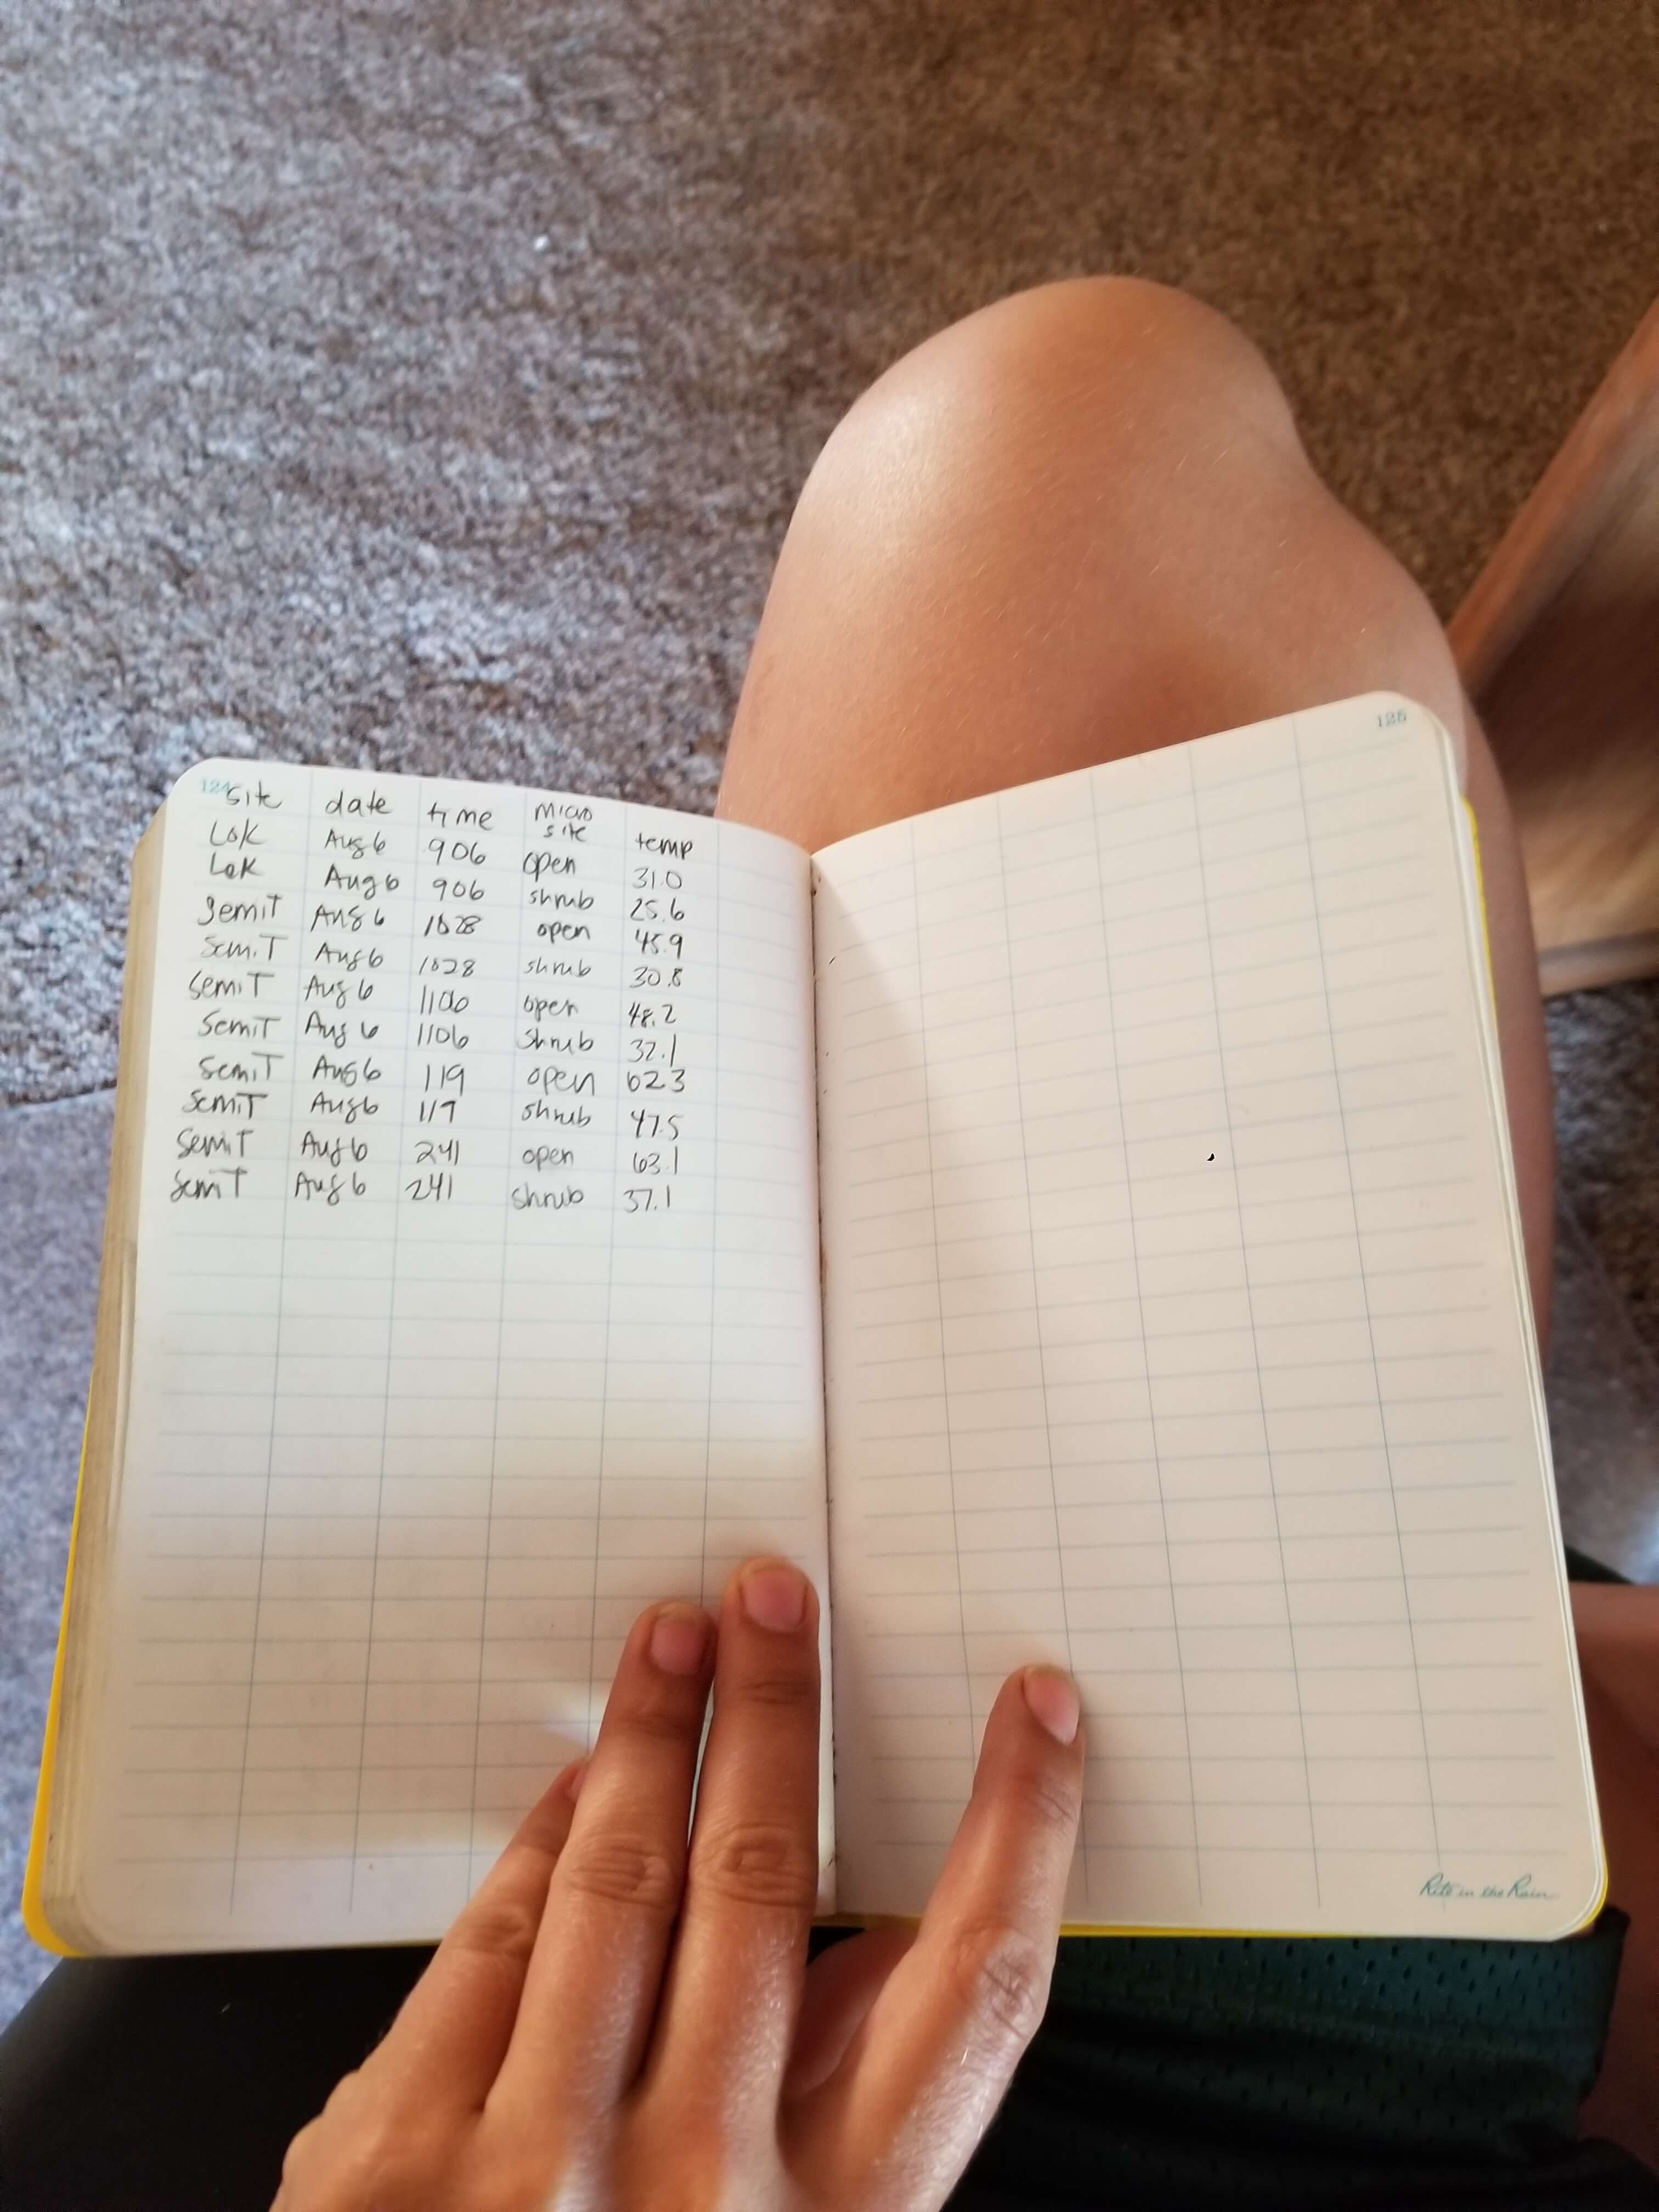 124 125
site date time micro site temp
Lok Aug 6 906 open 31.0
Lok Aug 6 906 shrub 25.6
SemiT Aug 6 1028 open 45.9
SemiT Aug 6 1028 shrub 30.8
SemiT Aug 6 1106 open 48.2
SemiT Aug 6 1106 shrub 32.1
SemiT Aug 6 119 open 62.3
SemiT Aug 6 119 shrub 47.5
SemiT Aug 6 241 open 63.1
SemiT Aug 6 241 shrub 37.1
Rite in the Rain